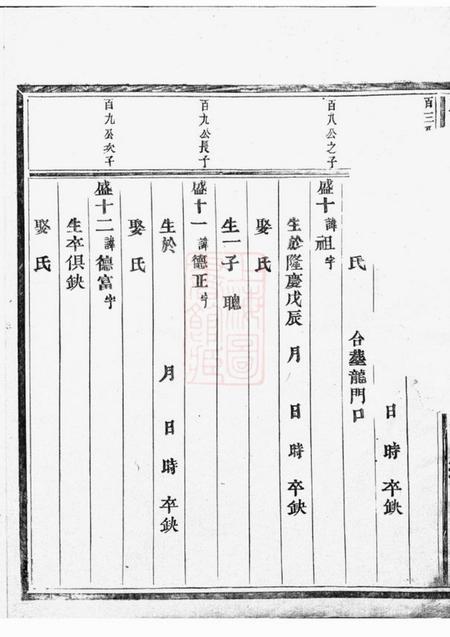 百三
日 時 卒缺
氏 合塟龍門口
百八公之子
盛十 諱祖 字
生於隆慶戊辰 月 日 時 卒缺
娶 氏
生一子 聰
百九公長子
盛十一 諱德正 字
生於 月 日 時 卒缺
娶 氏
百九公次子
盛十二 諱德富 字
生卒俱缺
娶 氏